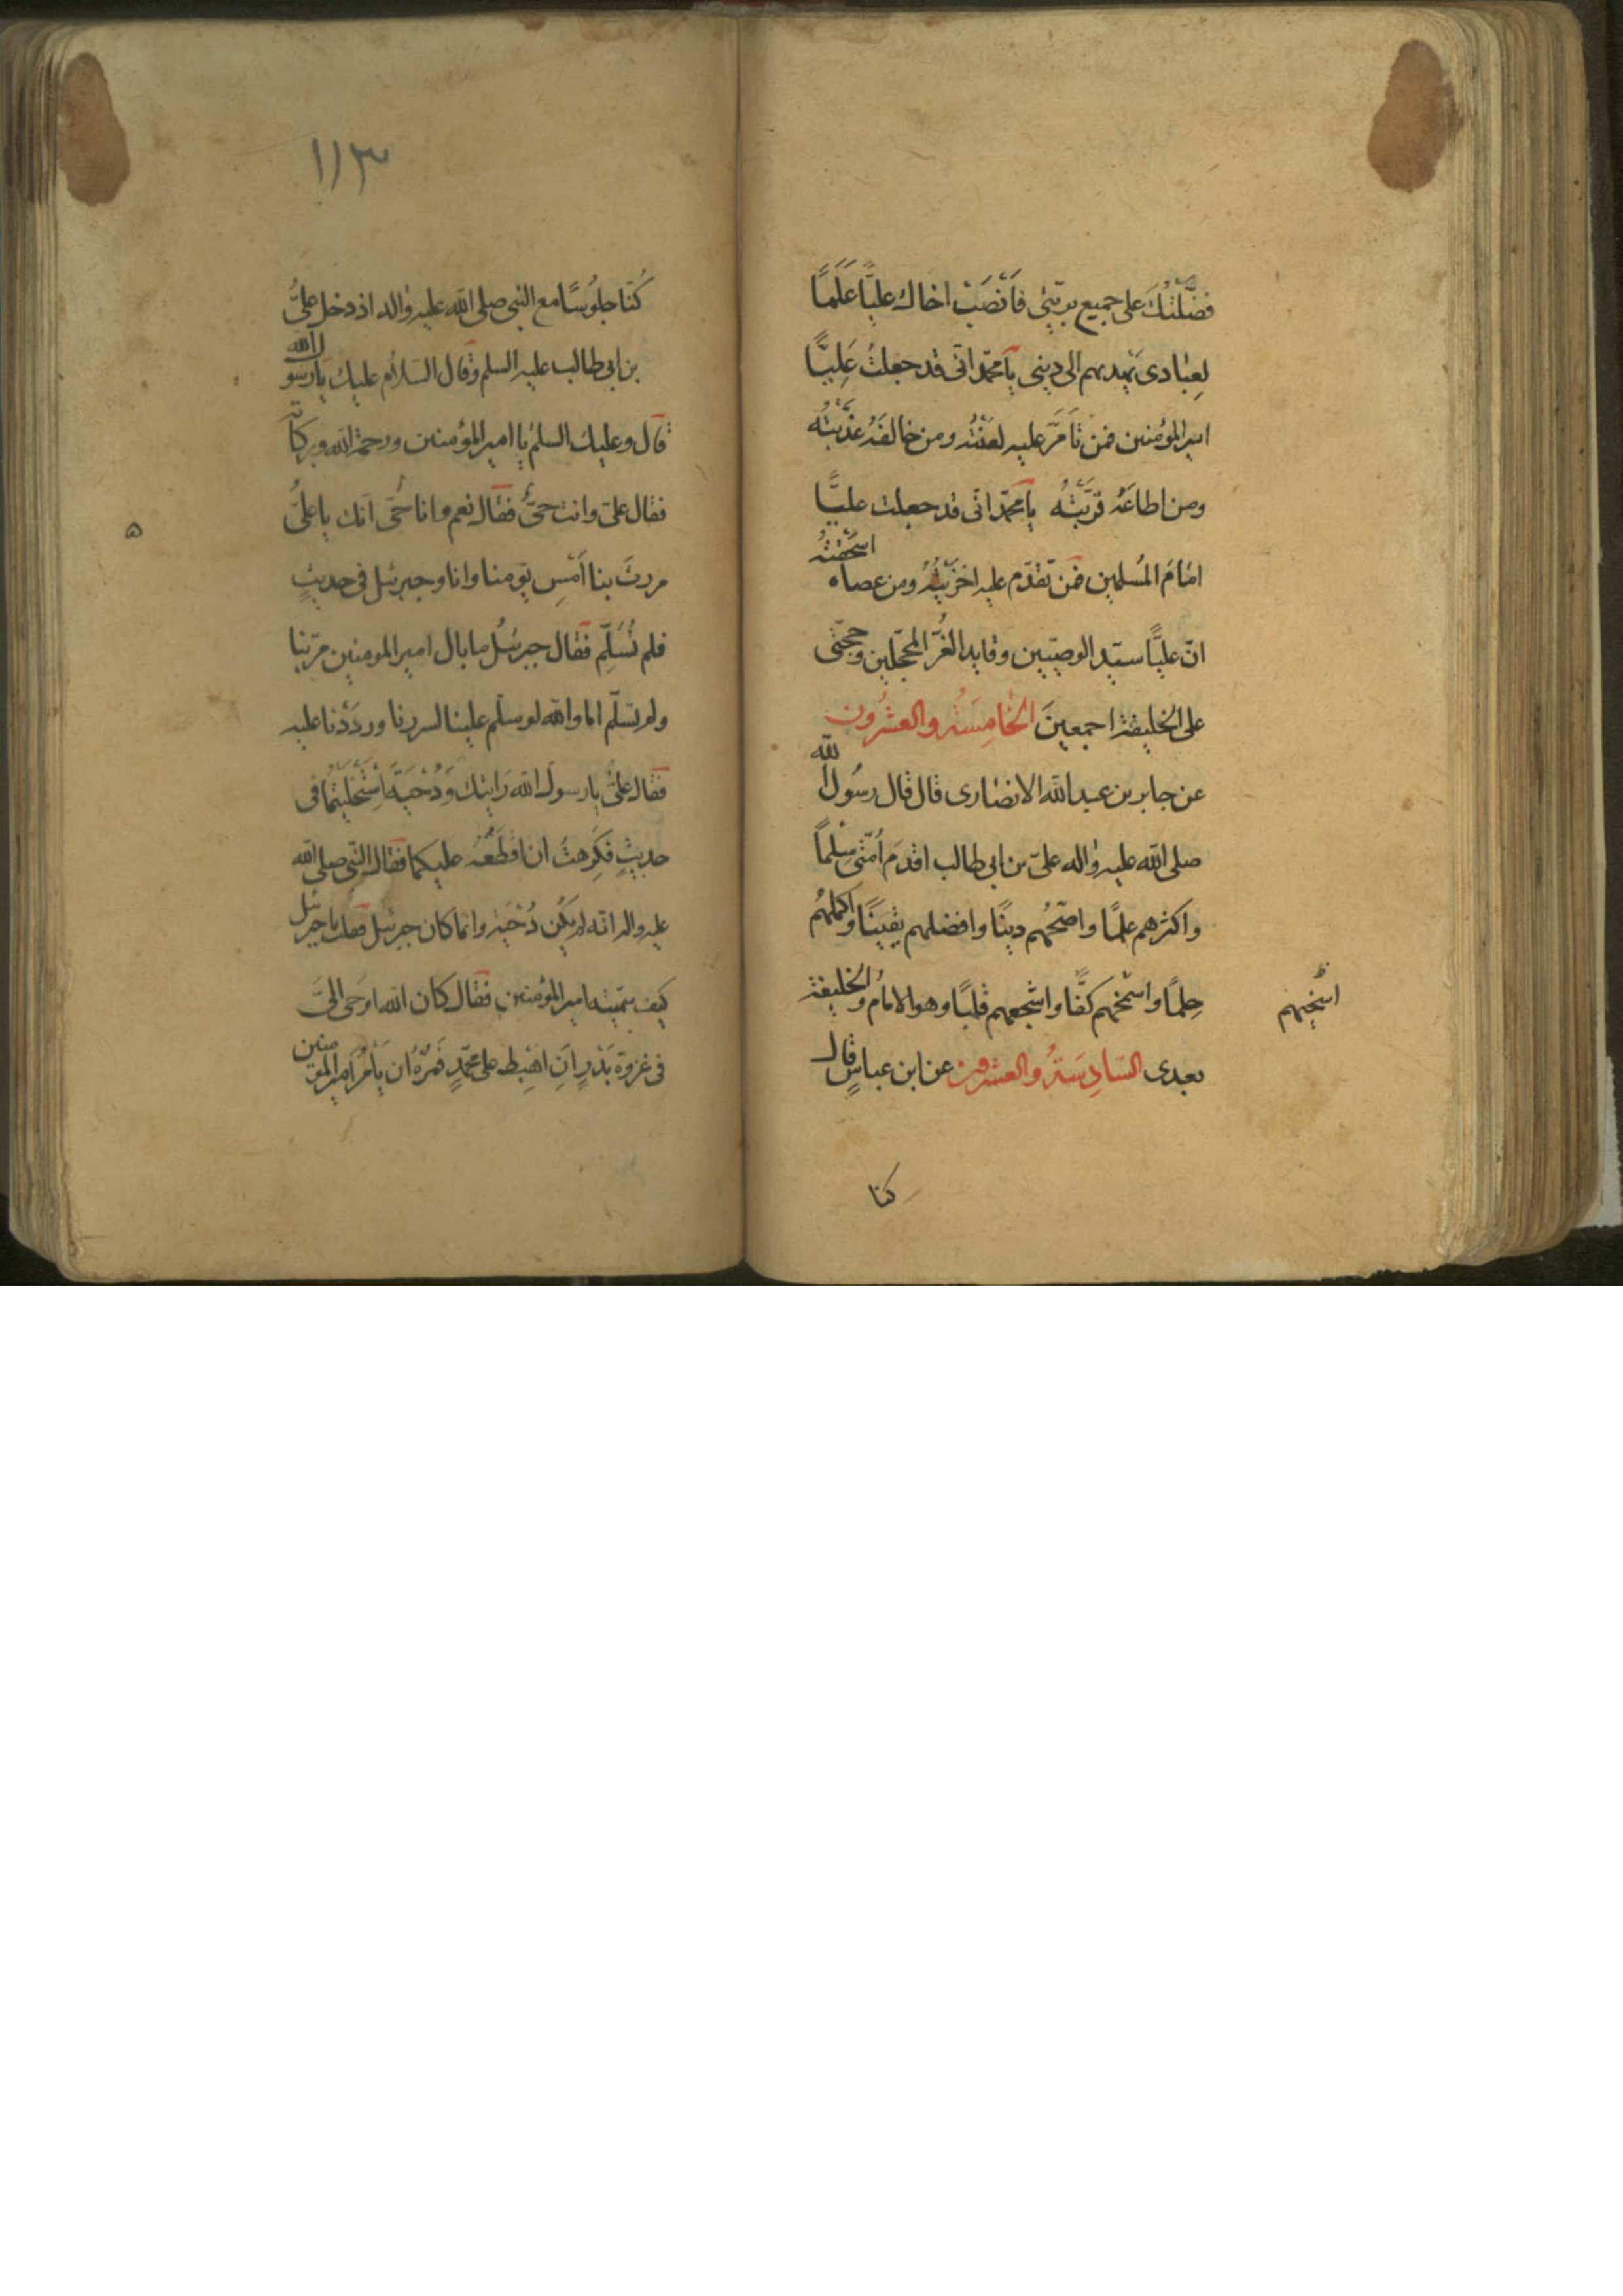 فضّلتُكَ على جميع بريّتي فَانْصَبْ اخاك عليًّا عَلَمًا
لعِبادى يهديهم الى دينى يا محمّد انّى قد جعلتُ عَلِيًّا
امير المؤمنين فمن تَأَمَّرَ عليه لعَنْتُه ومن خالفَهُ عذّبتُه
ومن اطاعَهُ قرّبتُهُ يا محمّد انّى قد جعلت عليًّا
امامَ المُسلمين فمن تقدّم عليه اخزيتُهُ ومن عصاه استحقتهُ
انّ عليًّا سيّد الوصيّين وقايد الغُرّ المحجّلين وحجّتى
على الخليقة اجمعينَ الخامِسَةُ والعشرُون
عن جابر بن عبد الله الانصارى قال قال رسُول الله
صلى الله عليه واله علىّ بن ابى طالب اقدَم اُمّتى سِلْمًا
واكثرهم علمًا واصحّهُم دينًا وافضلهم يقينًا واكملهُم
حِلمًا واسْمَخهم كفًّا واشجعهم قلبًا وهو الامامُ والخليفة
اسخيهم
بعدى السّادِسَةُ والعشرون عن ابن عباسٍ قال
كنا
١١٣
كُنّا جلُوسًا مع النبى صلى الله عليه واله اذ دخل علىُّ
بن ابى طالب عليه السلم وقال السّلام عليك يا رسول الله
قال وعليك السلمُ يا امير المؤمنين ورحمة الله وبركاته
فقال علىّ وانت حىٌّ فقال نعم وانا حىّ انّك يا علىُّ
مررتَ بنا اَمْسِ يومنا وانا وجبرئيل فى حديثٍ
فلم تُسَلِّم فقال جبرئيلُ ما بال امير المومنين مرّ بنا
ولم يسلّم اما والله لو سلّم علينا لسررنا ورددْنا عليه
فقال علىٌّ يا رسول الله رَايتك ودُحْيَةَ اِسْتَخْلَيْتُما فى
حديثٍ فكَرِهتُ ان اقطَعَه عليكما فقال النّبى صلى الله
عليه واله انّه لم يكُن دُحْيَة وانما كان جبرئيل فقلت يا جبرئيل
كيف سمّيته امير المؤمنين فقال كان الله اوحَى الىَّ
فى غزوة بَدْرٍ اَنِ اهْبِط على محمّدٍ فَمُرْهُ ان يَأْمُرَ امير المؤمنين
٥